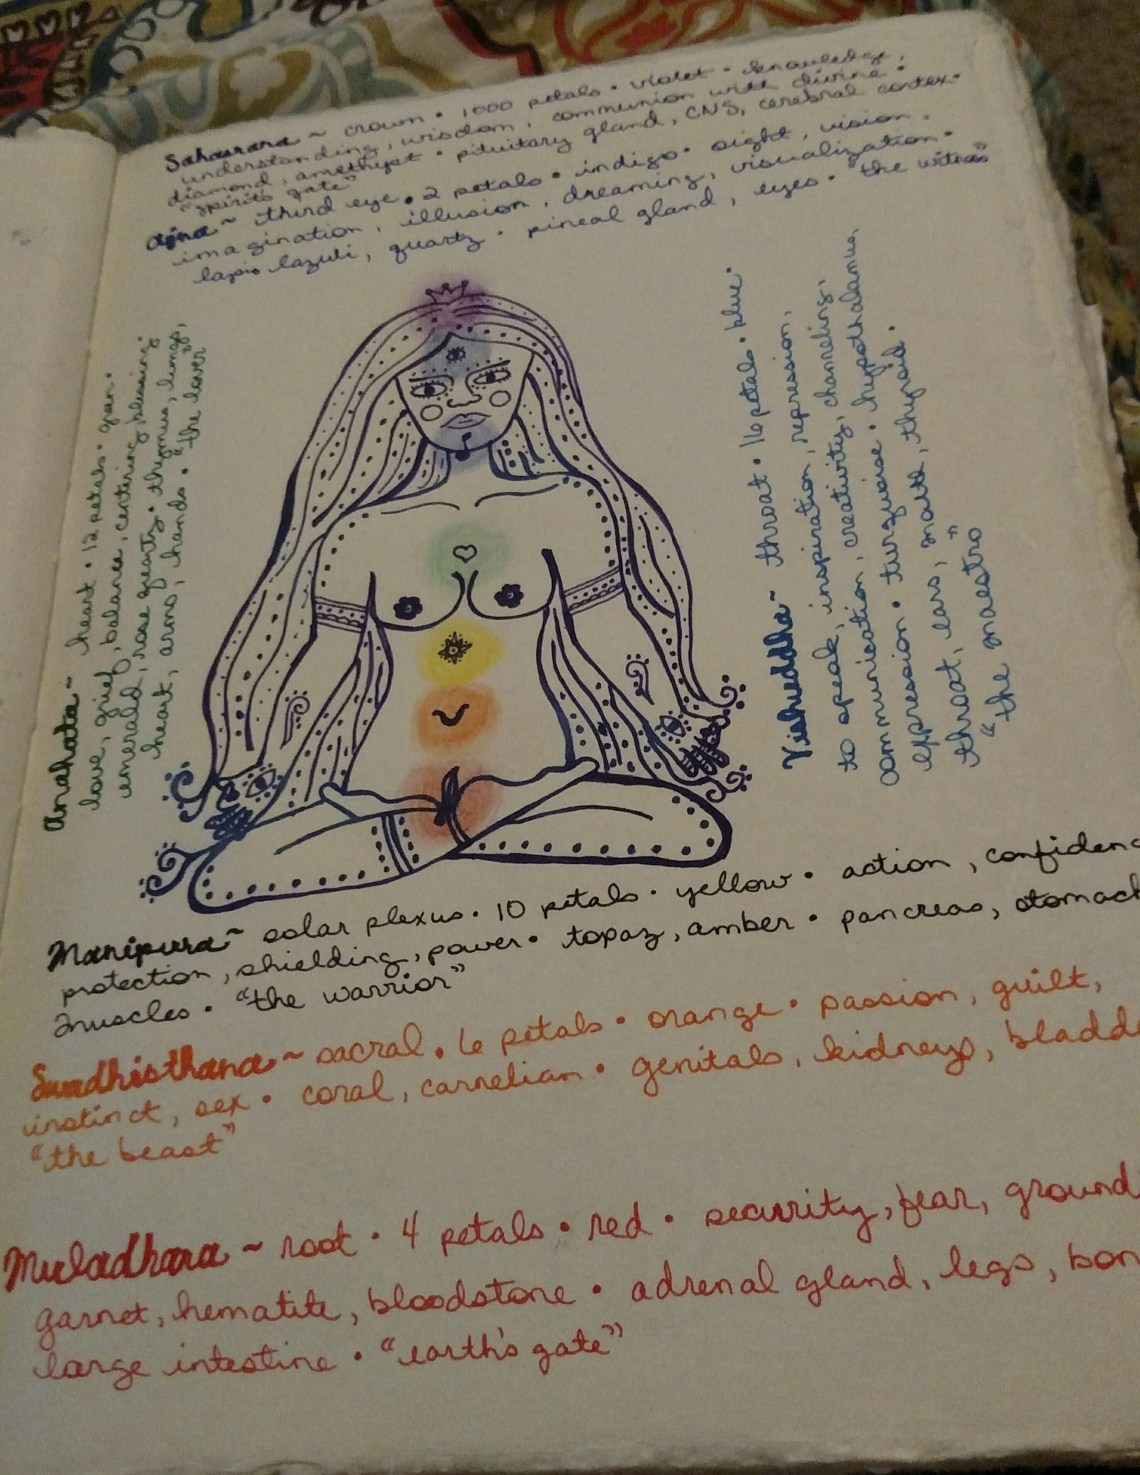 Sahasrara ~ crown • 1000 petals • violet • knowledge,
understanding, wisdom, communion with divine •
diamond, amethyst • pituitary gland, CNS, cerebral cortex •
"spirits gate"
Ajna ~ third eye • 2 petals • indigo • sight, vision,
imagination, illusion, dreaming, visualization •
lapis lazuli, quartz • pineal gland, eyes • "the witness"
Anahata ~ heart • 12 petals • green •
love, grief, balance, centering, blessing •
emerald, rose quartz • thymus, lungs,
heart, arms, hands • "the lover"
Vishuddha ~ throat • 16 petals • blue •
to speak, inspiration, repression,
communication, creativity, channeling,
expression • turquoise • hypothalamus,
throat, ears, mouth, thyroid •
"the maestro"
Manipura ~ solar plexus • 10 petals • yellow • action, confidenc
protection, shielding, power • topaz, amber • pancreas, stomach
muscles • "the warrior"
Swadhisthana ~ sacral • 6 petals • orange • passion, guilt,
instinct, sex • coral, carnelian • genitals, kidneys, bladd
"the beast"
Muladhara ~ root • 4 petals • red • security, fear, ground
garnet, hematite, bloodstone • adrenal gland, legs, bon
large intestine • "earth's gate"